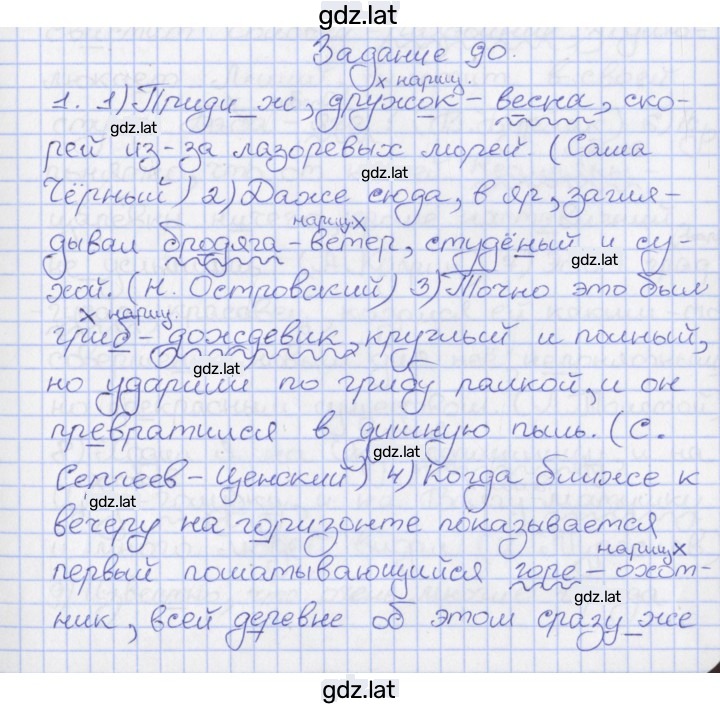 gdz.lat
Задание 90.
х нариц.
1. 1) Приди ж, дружок - весна, ско-
gdz.lat
рей из-за лазоревых морей. (Саша
gdz.lat
Чёрный) 2) Даже сюда, в яр, загля-
нариц х
дывал бродяга - ветер, студёный и су-
gdz.lat
хой. (Н. Островский) 3) Точно это был
х нариц.
гриб - дождевик, круглый и полный,
gdz.lat
но ударили по грибу палкой, и он
превратился в душную пыль. (С.
gdz.lat
Сергеев - Ценский) 4) Когда ближе к
gdz.lat
вечеру на горизонте показывается
нариц х
первый пошатывающийся горе - охот-
gdz.lat
ник, всей деревне об этом сразу же
gdz.lat